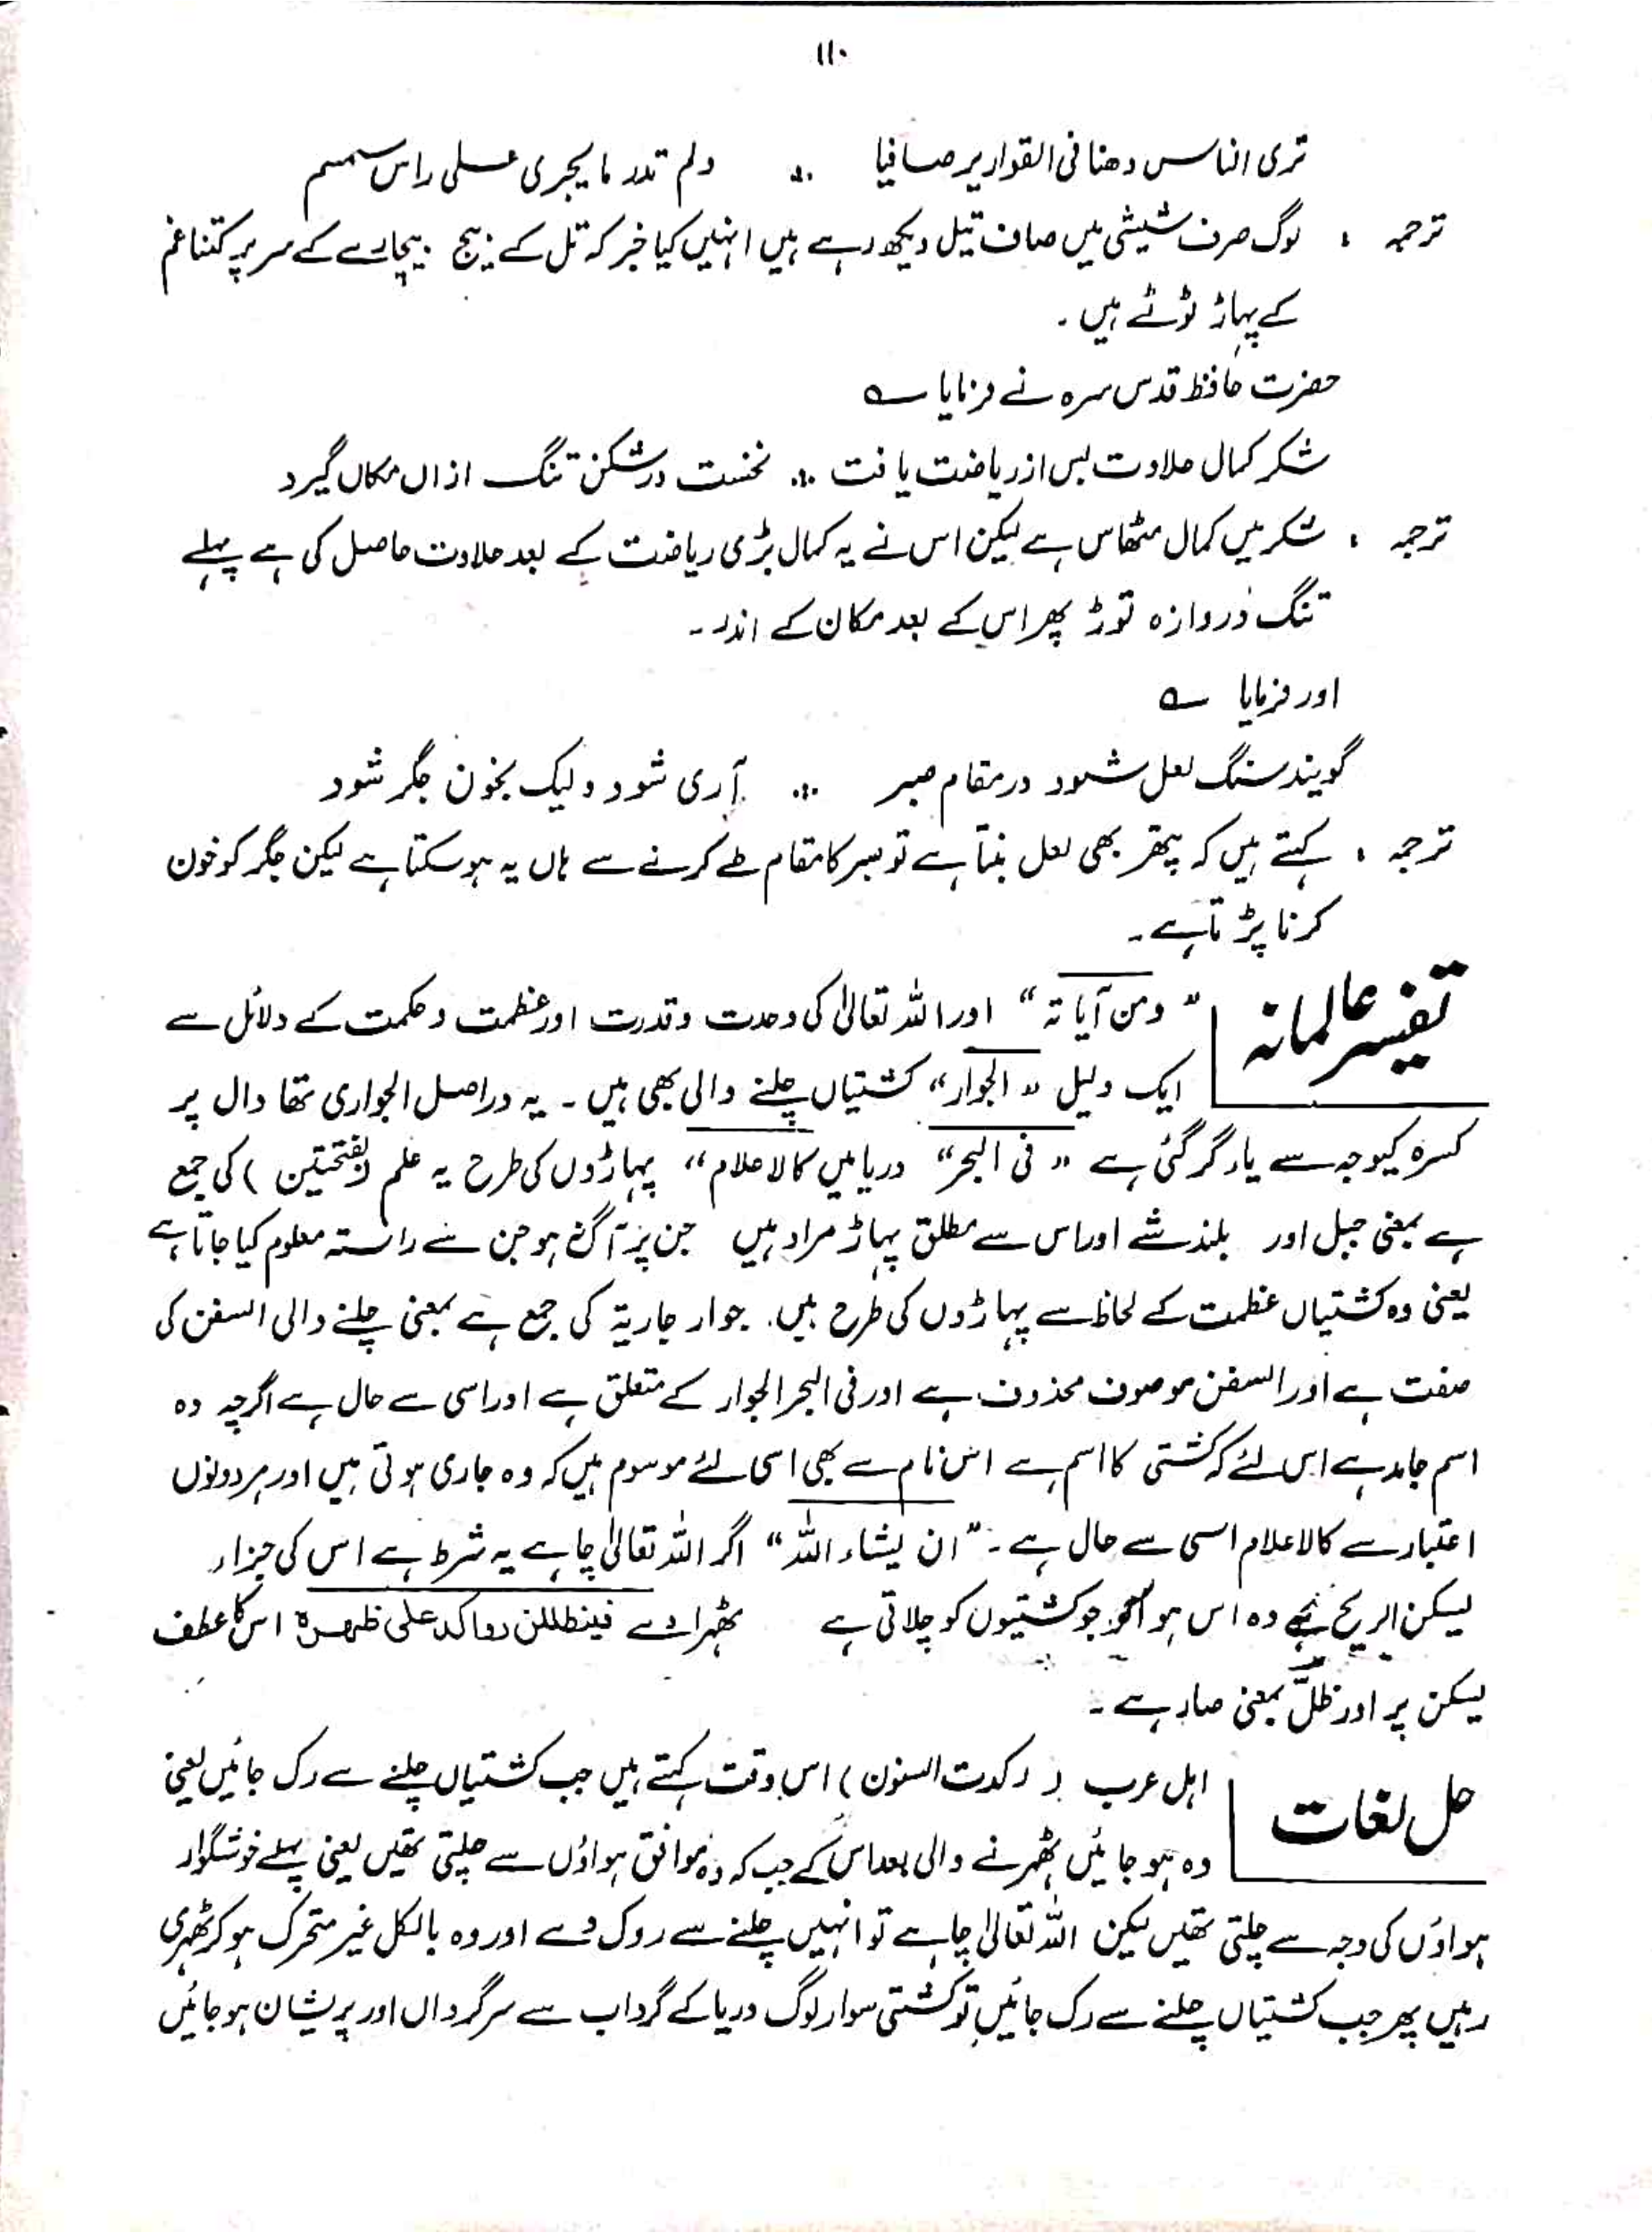 ۱۱۰
تری الناس دھنا فی القواریر صافیا ؞ ولم تدر ما یجری علی راس سمسم
ترجمہ : لوگ صرف شیشی میں صاف تیل دیکھ رہے ہیں انہیں کیا خبر کہ تل کے بیج بیچارے کے سر پر کتنا غم
کے پہاڑ ٹوٹے ہیں ۔
حضرت حافظ قدس سرہ نے فرمایا ؎
شکر کمال حلاوت پس از ریاضت یافت ؞ نخست در شکن تنگ ازاں مکاں گیرد
ترجمہ : شکر میں کمال مٹھاس ہے لیکن اس نے یہ کمال بڑی ریاضت کے بعد حلاوت حاصل کی ہے پہلے
تنگ دروازہ توڑ پھر اس کے بعد مکان کے اندر ۔
اور فرمایا ؎
گویند سنگ لعل شود در مقام صبر ؞ آری شود ولیک بخون جگر شود
ترجمہ : کہتے ہیں کہ پتھر بھی لعل بنتا ہے تو صبر کا مقام طے کرنے سے ہاں یہ ہو سکتا ہے لیکن جگر کو خون
کرنا پڑتا ہے ۔
تفسیر عالمانہ
”ومن آیاتہ“ اور اللہ تعالیٰ کی وحدت وقدرت اور عظمت وحکمت کے دلائل سے
ایک دلیل ”الجوار“ کشتیاں چلنے والی بھی ہیں ۔ یہ دراصل الجواری تھا دال پر
کسرہ کیوجہ سے یاء گر گئی ہے ”فی البحر“ دریا میں کالاعلام“ پہاڑوں کی طرح یہ علم (بفتحتین) کی جمع
ہے بمعنی جبل اور بلند شے اور اس سے مطلق پہاڑ مراد ہیں جن پر آگ ہو جن سے راستہ معلوم کیا جاتا ہے
یعنی وہ کشتیاں عظمت کے لحاظ سے پہاڑوں کی طرح ہیں . جوار جاریۃ کی جمع ہے بمعنی چلنے والی السفن کی
صفت ہے اور السفن موصوف محذوف ہے اور فی البحر الجوار کے متعلق ہے اور اسی سے حال ہے اگرچہ وہ
اسم جامد ہے اس لئے کہ کشتی کا اسم ہے اس نام سے بھی اسی لئے موسوم ہیں کہ وہ جاری ہوتی ہیں اور ہر دونوں
اعتبار سے کالاعلام اسی سے حال ہے ۔ ”ان یشاء اللہ“ اگر اللہ تعالیٰ چاہے یہ شرط ہے اس کی جزاء
یسکن الریح ہے وہ اس ہوا کو جو کشتیوں کو چلاتی ہے ٹھہرا دے فیظللن رواکد علی ظہرہ اس کا عطف
یسکن پر اور ظلّ بمعنی صار ہے ۔
حل لغات
اہل عرب ( رکدت السفن ) اس وقت کہتے ہیں جب کشتیاں چلنے سے رک جائیں یعنی
وہ ہو جائیں ٹھہرنے والی بعد اس کے جب کہ وہ موافق ہواؤں سے چلتی تھیں یعنی پہلے خوشگوار
ہواؤں کی وجہ سے چلتی تھیں لیکن اللہ تعالیٰ چاہے تو انہیں چلنے سے روک دے اور وہ بالکل غیر متحرک ہو کر ٹھہری
رہیں پھر جب کشتیاں چلنے سے رک جائیں تو کشتی سوار لوگ دریا کے گرداب سے سرگرداں اور پریشان ہو جائیں